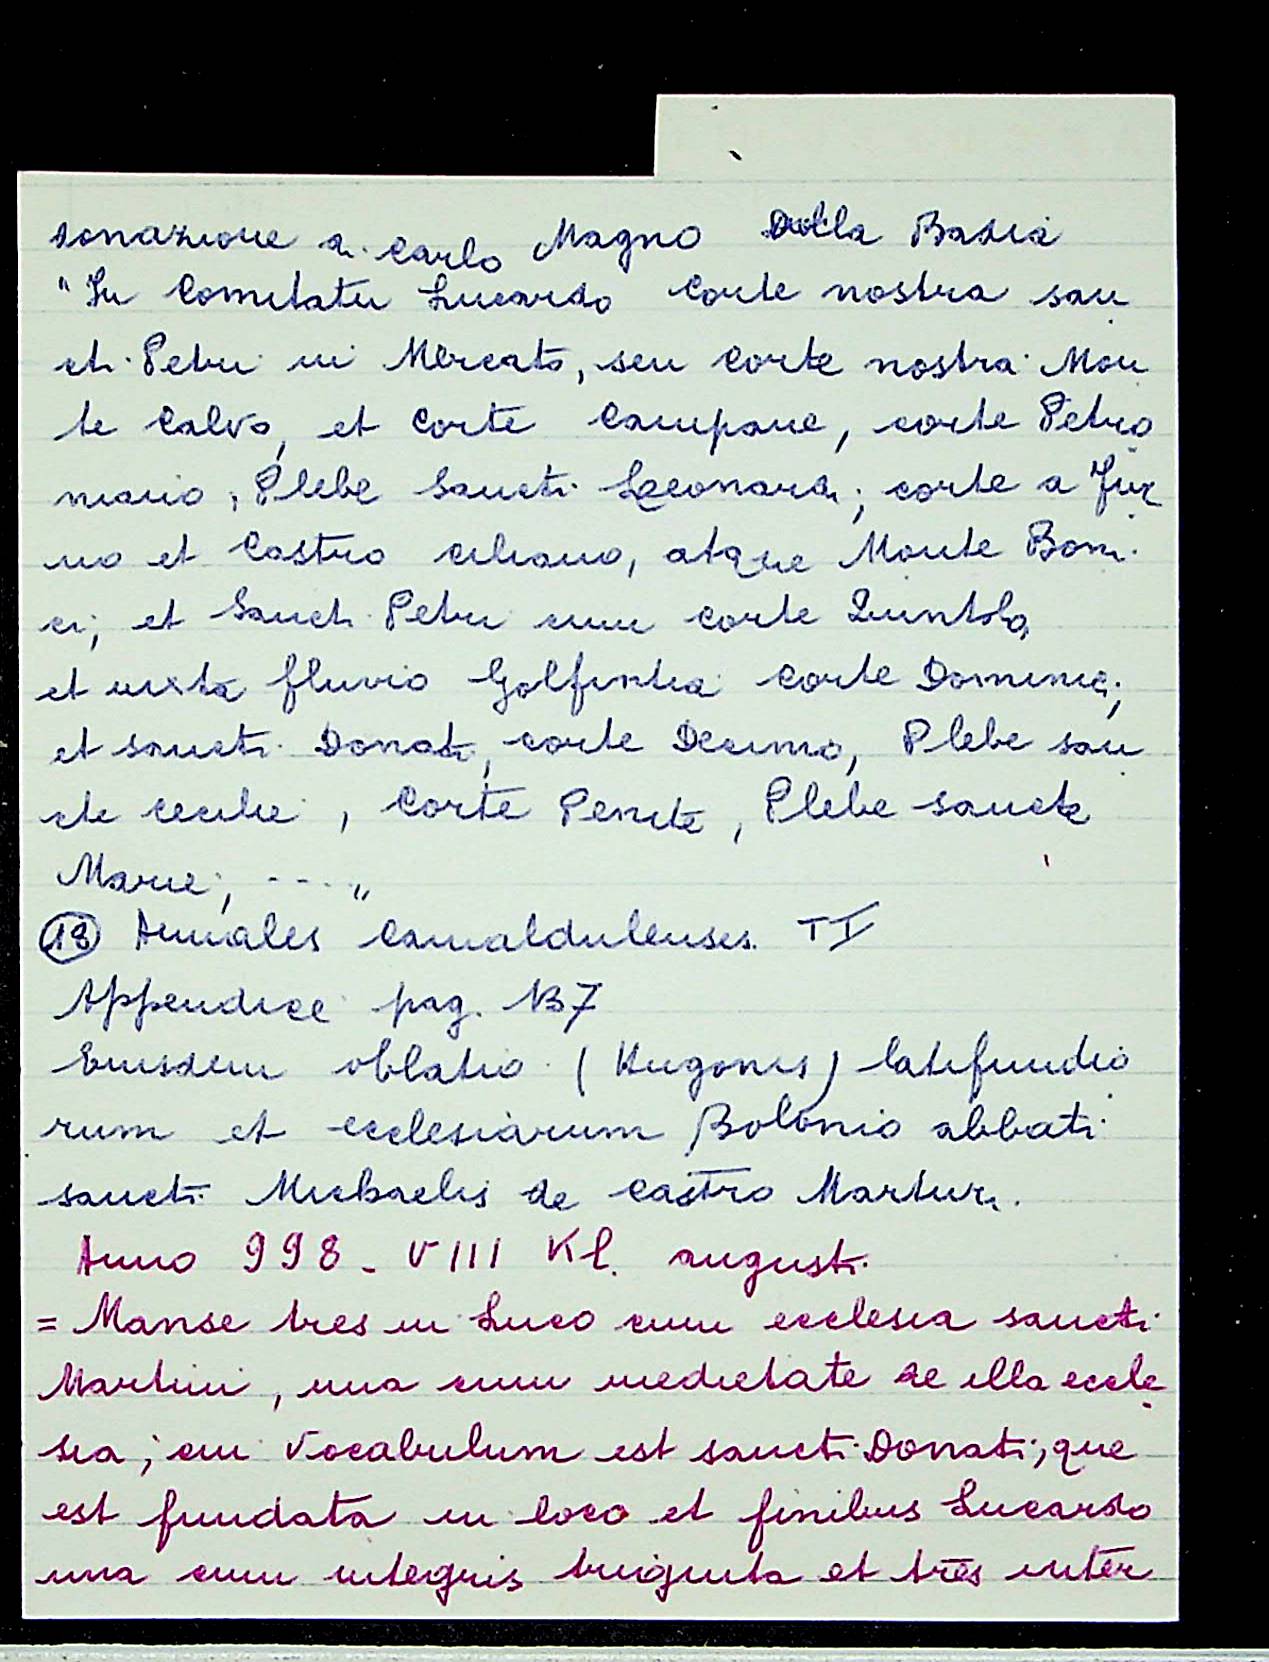 donazione a. Carlo Magno Della Badia
"In Comitatu Lucardo corte nostra san
cti Petri in Mercato, seu corte nostra Mon
te Calvo, et corte Campane, corte Petro
niano, Plebe Sancti Leonardi; corte a Fur
no et Castro ciliano, atque Monte Boni
ci; et Sancti Petri cum corte Quintola
et iuxta fluvio Golfintia corte Dominic;
et sancti Donati, corte Decimo, Plebe san
cte cecilie, corte Penete, Plebe sancte
Marie; ----"
(18) Annales Camaldulenses. T I
Appendice pag. 137
Eiusdem oblatio (Hugonis) latifundio
rum et ecclesiarum Bolonio abbati
sancti Michaelis de castro Marturi.
Anno 998 - VIII Kl. augusti.
= Manse tres in Luco cum ecclesia sancti
Martini, una cum medietate de illa eccle
sia; cui vocabulum est sancti Donati; que
est fundata in loco et finibus Lucardo
una cum integris triginta et tres inter